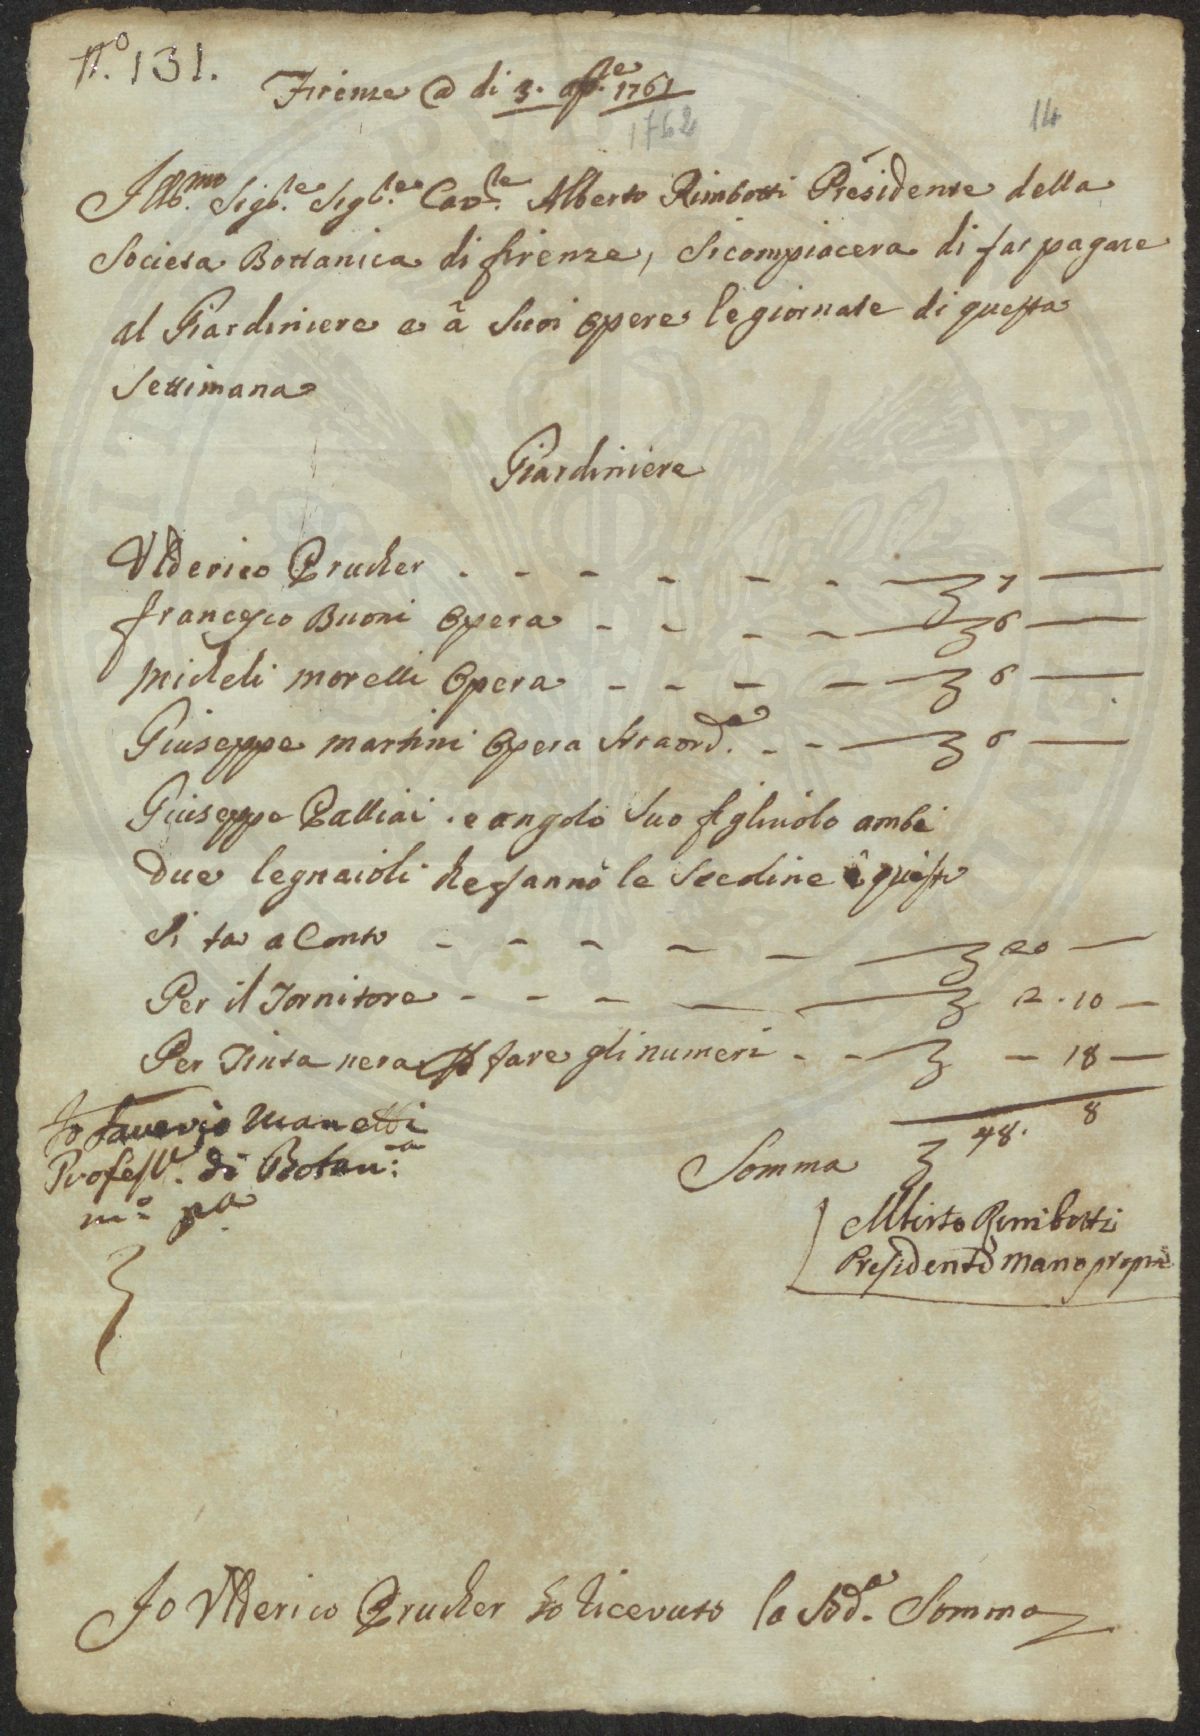 N.o 131.
Firenze @ di 3. ap.le 1761
1762
14
Illmo. Sig.le Sig.le Cav.le Alberto Rimbotti Presidente della
Societa Bottanica di firenze, Si compiacera di far pagare
al Giardiniere e â Suoi opere le giornate di questa
Settimana
Giardiniere
Ulderico Prucher - - - - - - 7 —
francesco Buoni Opera - - - - 6 —
Micheli morelli Opera - - - - 6 —
Giuseppe martini Opera Straord.a - - 6 —
Giuseppe Galliai e angolo Suo figliuolo ambi
due legnaioli che fanno le Scedine e questi
Si da a Conto - - - - - 20 —
Per il Tornitore - - - - 2 . 10 —
Per Tinta nera fare gli numeri - - — 18 —
Somma 48. 8
Io Saverio Manetti
Profess.r di Botan:ca
m.o pa
Alberto Rimbotti
Presidente mano propria
Io Ulderico Prucher ho Ricevuto la Sod.a Somma